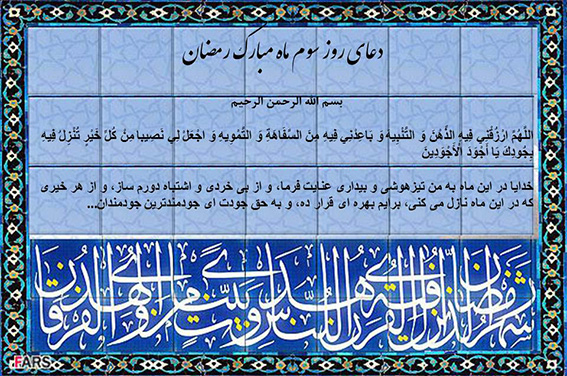 دعای روز سوم ماه مبارک رمضان
بسم الله الرحمن الرحیم
اللهُمّ ارْزُقْنی فیهِ الذّهْنَ وَ التّنْبیهَ وَ باعِدْنی فیهِ مِنَ السّفاهَةِ وَ التّمْویهِ وَ اجْعَلْ لِی نَصِیبا مِنْ کُلّ خَیْرٍ تُنْزِلُ فیهِ
بِجُودِکَ یَا أَجْوَدَ الْأَجْوَدِینَ
خدایا در این ماه به من تیزهوشی و بیداری عنایت فرما، و از بی خردی و اشتباه دورم ساز، و از هر خیری
که در این ماه نازل می کنی، برایم بهره ای قرار ده، و به حق جودت ای جودمندترین جودمندان...
شهر رمضان الذی انزل فیه القرآن هدی للناس و بینات من الهدی و الفرقان
FARS